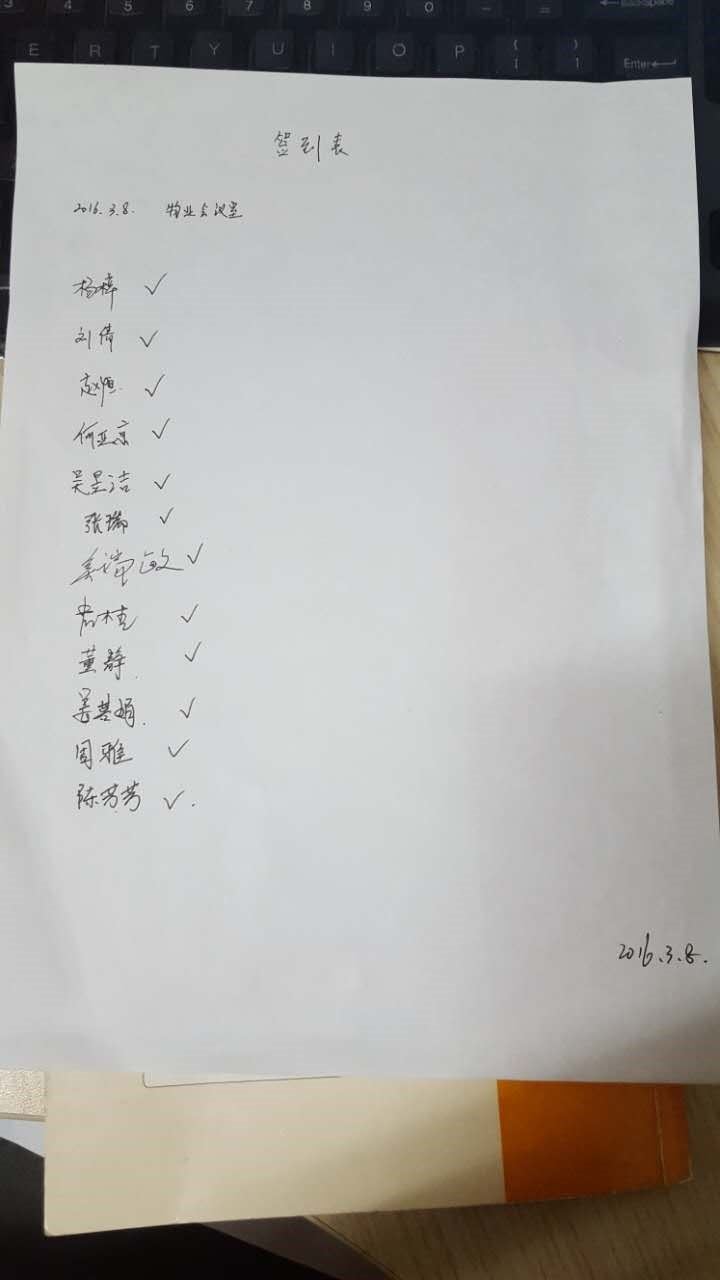 3 4 5 6 7 8 9 0 - =
Backspace
E R T Y U I O P { }
[ ]
Enter
签到表
2016.3.8. 物业会议室
杨梓 ✓
刘倩 ✓
赵恒 ✓
何亚京 ✓
吴昱洁 ✓
张瑞 ✓
✓
✓
董静. ✓
✓
周雅 ✓
陈芳芳 ✓.
2016.3.8.